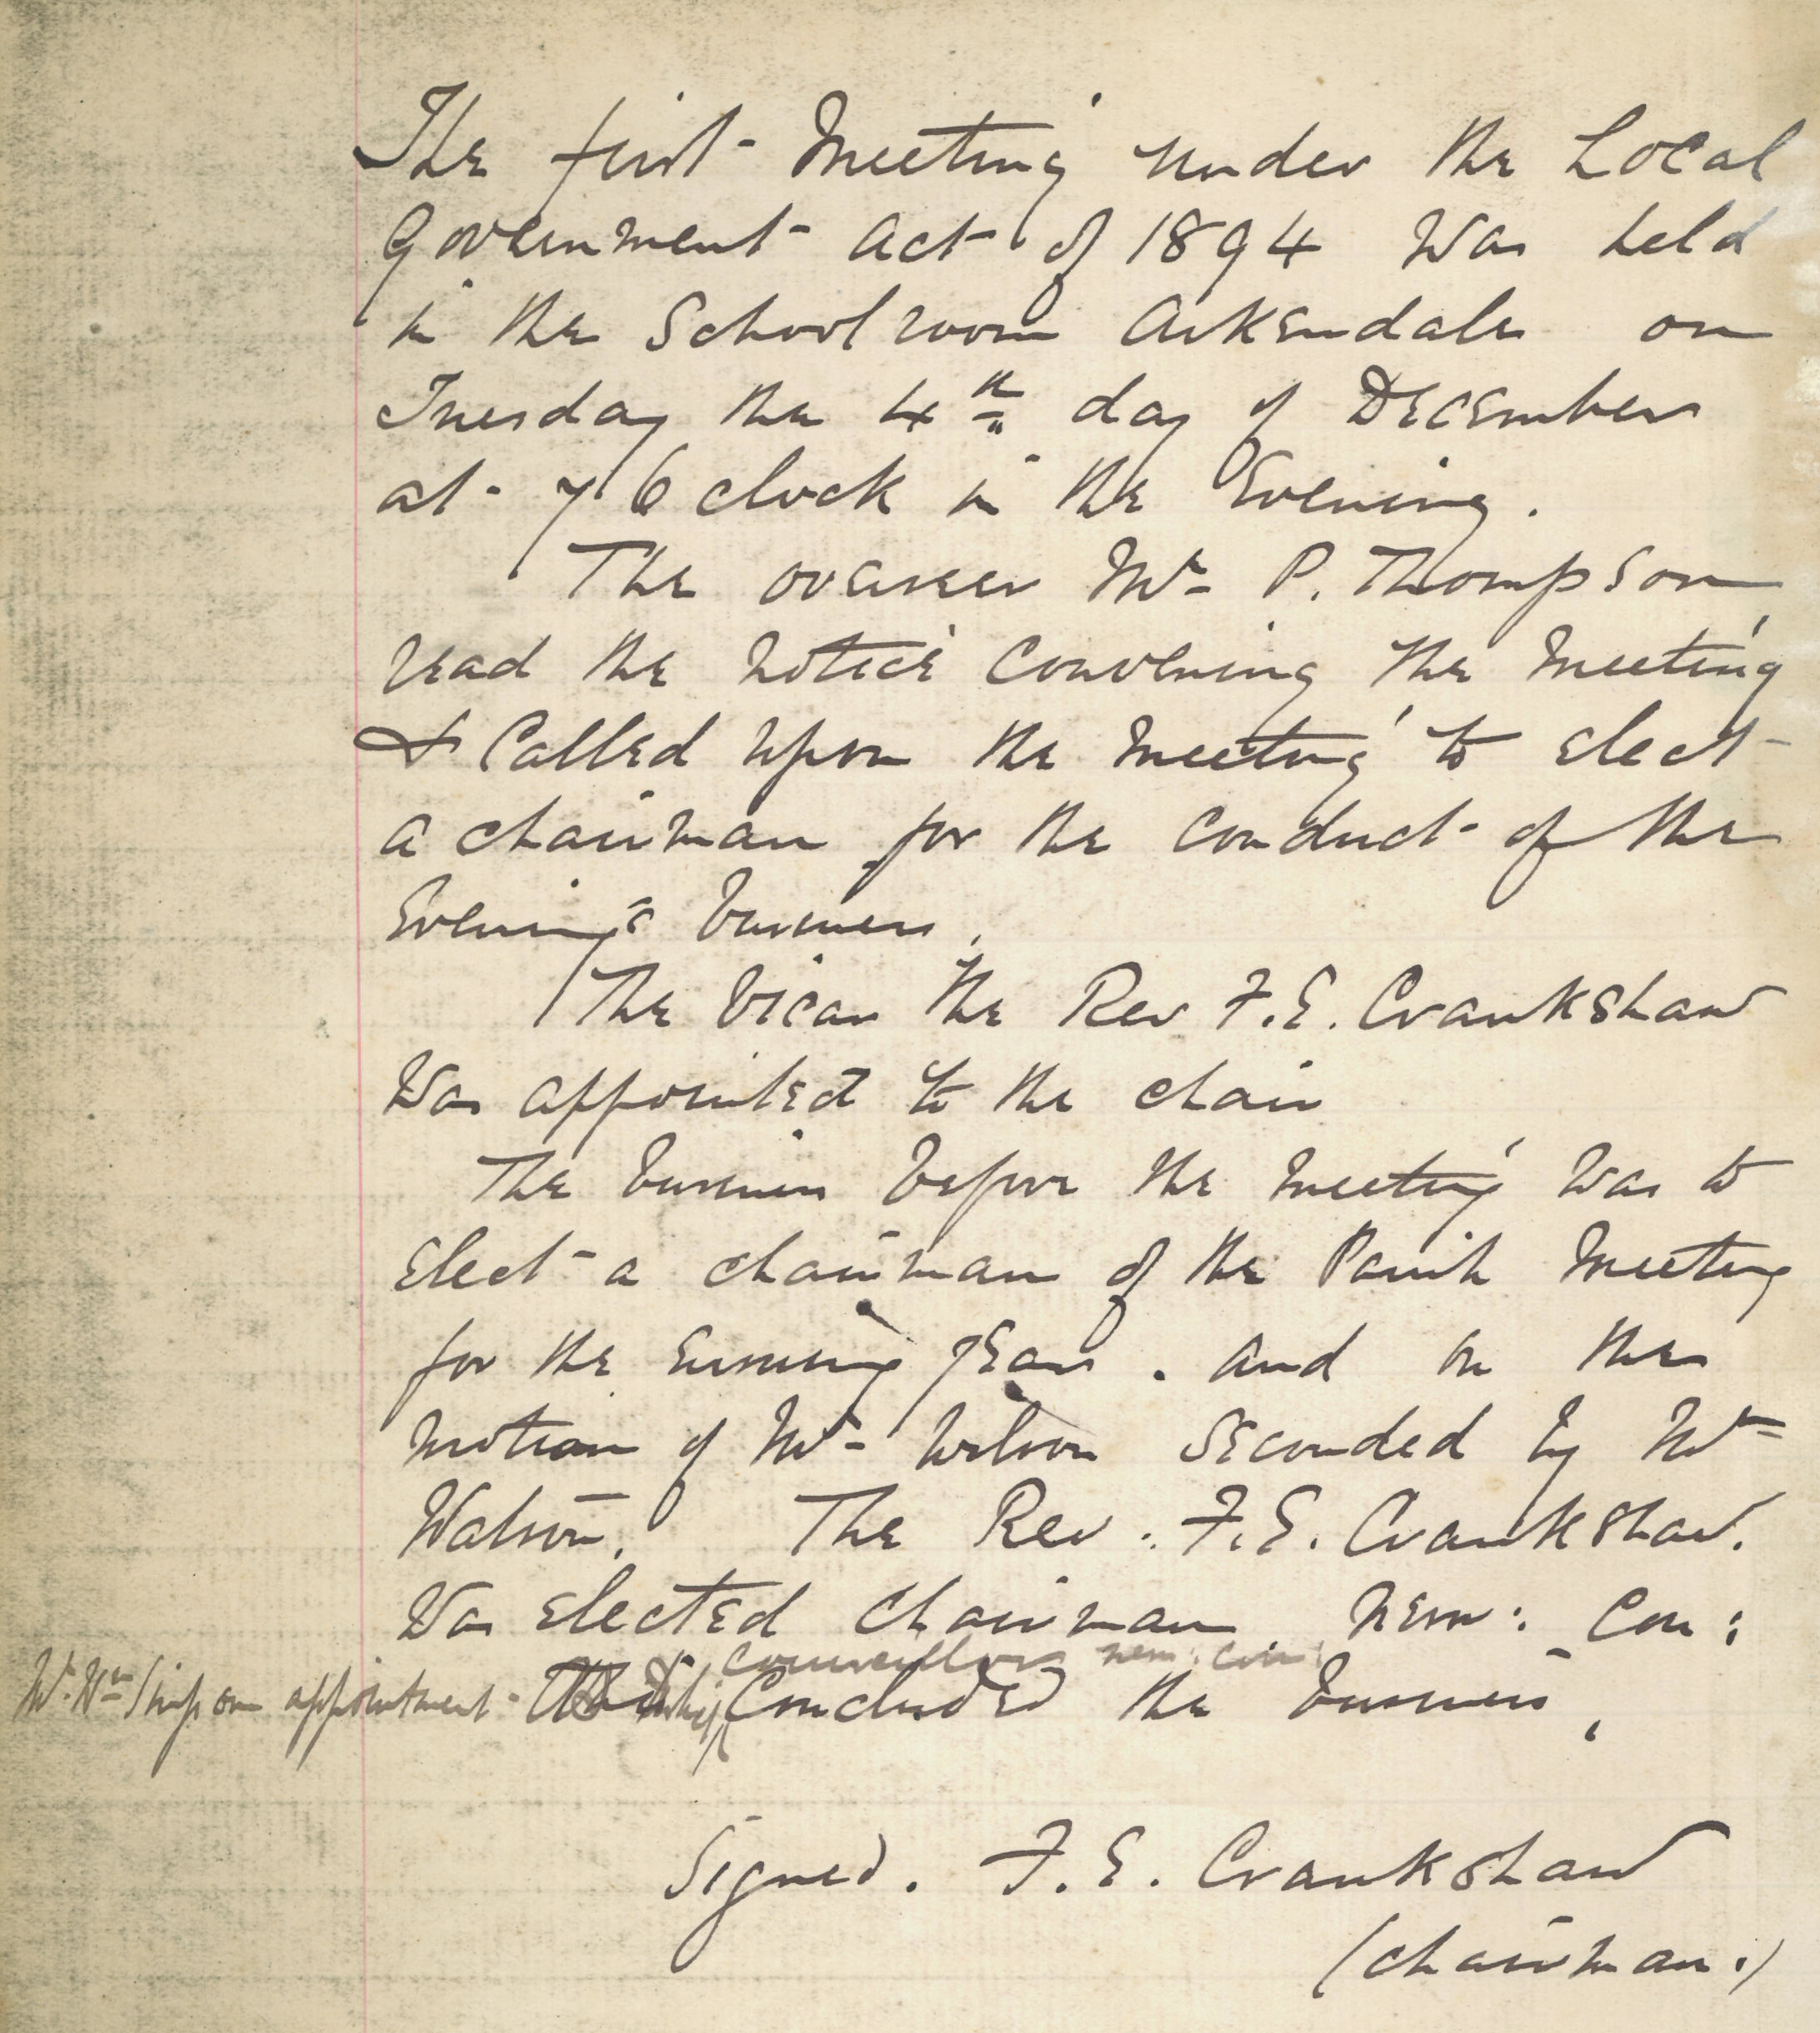 The first Meeting under the Local
Government Act of 1894 was held
in the Schoolroom Arkendale on
Tuesday the 4th day of December
at 7 O'clock in the Evening.
The overseer Mr P. Thompson
read the notice convening the Meeting
& called upon the Meeting to elect
a chairman for the conduct of the
Evening's business.
The Vicar the Rev F.E. Crankshaw
was appointed to the chair
The business before the meeting was to
elect a chairman of the Parish Meeting
for the ensuing year. and on the
motion of Mr Wilson seconded by Mr
Watson. The Rev. F.E. Crankshaw.
was elected chairman nem: con:
councillor nem: con:
Mr. Wm Simpson appointment Concluded the business.
Signed. F.E. Crankshaw
(chairman.)